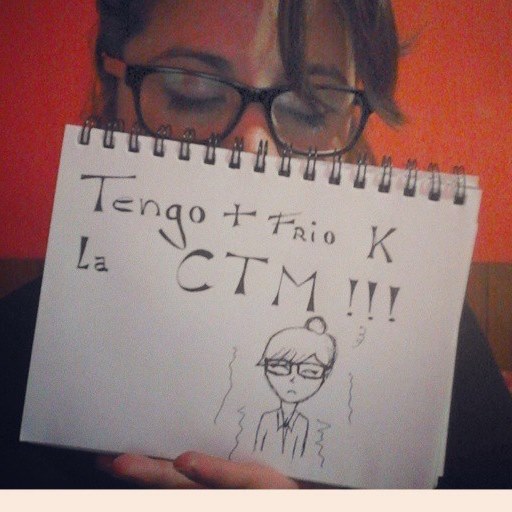 Tengo + Frio K
La CTM !!!